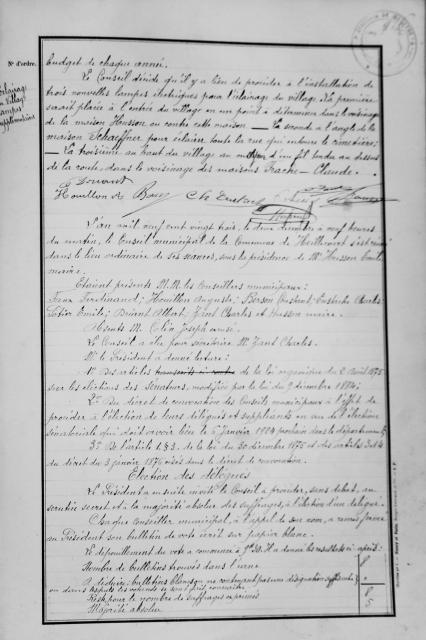 N° d'ordre.
Eclairage
au Village
Lampes
supplémentaires
budget de chaque année.
Le Conseil décide qu'il y a lieu de procéder à l'installation de
trois nouvelles lampes électriques pour l'éclairage du village. La première
serait placée à l'entrée du village en un point à déterminer dans le voisinage
de la maison Husson ou contre cette maison — La seconde à l'angle de la
maison Schaeffner pour éclairer toute la rue qui entoure le cimetière;
— La troisième au haut du village au moyen d'un fil tendu au dessus
de la route, dans le voisinage des maisons Frache - Claude.
Houillon
L'an mil neuf cent vingt trois, le deux décembre à neuf heures
du matin, le Conseil municipal de la Commune de s'est réuni
dans le lieu ordinaire de ses séances, sous la présidence de Mr Husson Emile
maire.
Etaient présents M.M. les Conseillers municipaux:
Ferdinand; Houillon Auguste; Constant; Eustache Charles;
Emile; Albert; Zant Charles et Husson maire.
Absents M. Colin Joseph excusé.
Le Conseil a élu pour secrétaire Mr. Zant Charles.
Mr. le Président a donné lecture:
1° Des articles de la loi organique du 2 Août 1875
sur les élections des Sénateurs, modifiée par la loi du 9 décembre 1884;
2° Du décret de convocation des Conseils municipaux à l'effet de
procéder à l'élection de leurs délégués et suppléants en vue de l'élection
sénatoriale qui doit avoir lieu le 6 janvier 1924 prochain dans le département;
3° De l'article 1 § 3. de la loi du 30 décembre 1875 et des articles 3 et 4
du décret du 3 janvier 1876 visés dans le décret de convocation.
Election des délégués
Le Président a ensuite invité le Conseil à procéder, sans débat, au
scrutin secret et à la majorité absolue des suffrages, à l'élection d'un délégué.
Chaque Conseiller municipal, à l'appel de son nom, a remis fermé
au Président son bulletin de vote écrit sur papier blanc.
Le dépouillement du vote a commencé à 9h 30. Il a donné les résultats ci-après:
Nombre de bulletins trouvés dans l'urne 8
A déduire: bulletins blancs ou ne contenant pas une désignation suffisante
ou dans lesquels les votants se sont fait connaître
Reste pour le nombre de suffrages exprimés 8
Majorité absolue 5